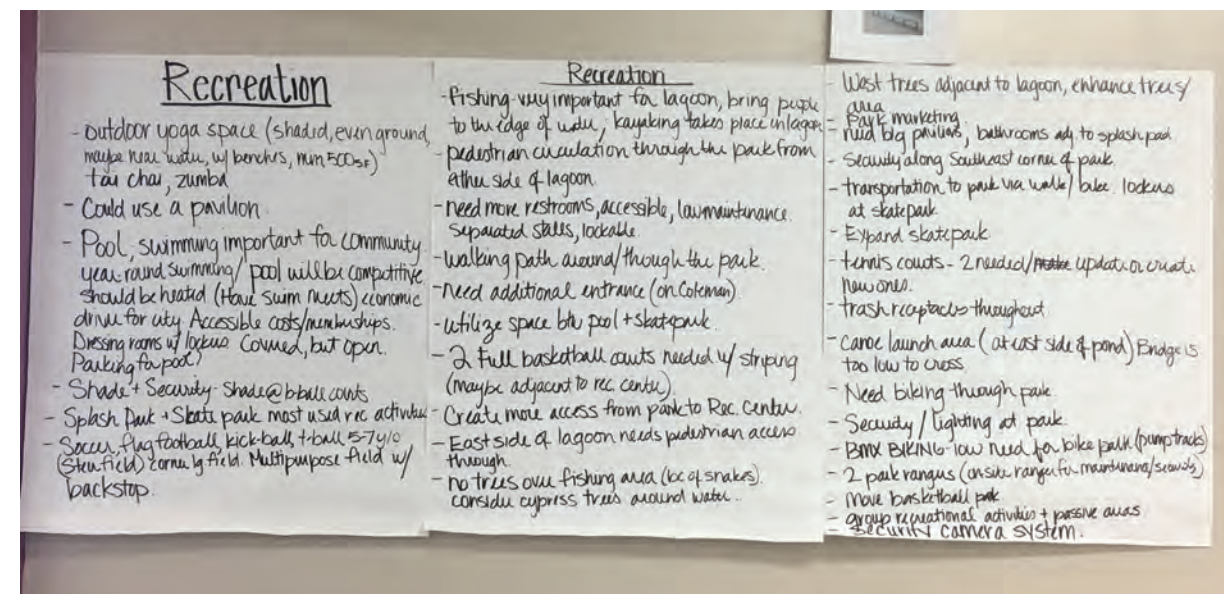 Recreation
- outdoor yoga space (shaded, even ground,
maybe near water, w/ benches, min 500SF)
tai chai, zumba
- Could use a pavilion.
- Pool, swimming important for community
year-round swimming/ pool will be competitive
should be heated (Have swim meets) economic
driver for city. Accessible costs/memberships.
Dressing rooms w/ lockers Covered, but open.
Parking for pool?
- Shade + Security - Shade@ b-ball courts
- Splash Park + Skate park most used rec activities
- Soccer, flag football, kick-ball, t-ball 5-7 y/o
field) corner lg field. Multipurpose field w/
backstop.
Recreation
- Fishing-very important for lagoon, bring people
to the edge of water; kayaking takes place in lagoon
- pedestrian circulation through the park from
either side of lagoon.
- need more restrooms, accessible, low maintenance.
separated stalls, lockable.
- walking path around/through the park.
- need additional entrance (on Coleman).
- utilize space btw pool + skatepark.
- 2 Full basketball courts needed w/ striping
(maybe adjacent to rec. center).
- Create more access from park to Rec. Center.
- East side of lagoon needs pedestrian access
through.
- no trees over fishing area (bc of snakes).
consider cypress trees around water.
- West trees adjacent to lagoon, enhance trees/
area
- Park marketing.
- need big pavilions, bathrooms adj. to splash pad.
- Security along Southeast corner of park.
- transportation to park via walk/ bike. lockers
at skatepark.
- Expand skatepark
- tennis courts - 2 needed/ update or create
new ones.
- trash receptacles throughout.
- Canoe launch area (at east side of pond) Bridge is
too low to cross.
- Need biking through park.
- Security / lighting at park.
- BMX BIKING - low need for bike park (pump tracks)
- 2 park rangers (onsite ranger for maintenance/security)
- Move basketball
- group recreational activities + passive areas
- Security camera system.